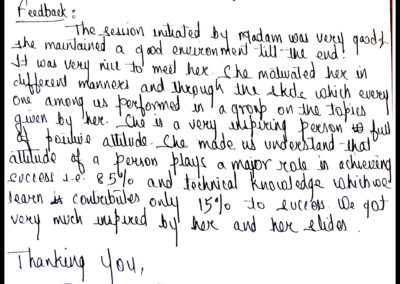 Feedback:
The session initiated by Madam was very good &
she maintained a good environment till the end.
It was very nice to meet her. She motivated her in
different manners and through the skits which every
one among us performed in a group on the topics
given by her. She is a very inspiring person full
of positive attitude. She made us understand that
attitude of a person plays a major role in achieving
success i.e. 85% and technical knowledge which we
learn contributes only 15% to success. We got
very much inspired by her and her slides.
Thanking You,